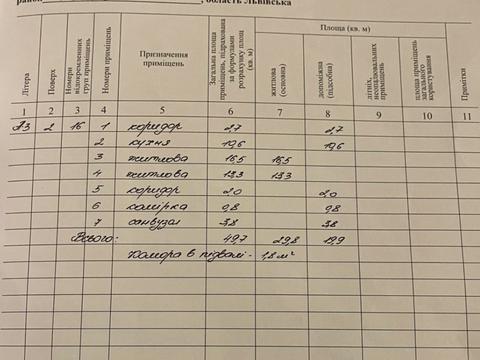 , область Львівська
Літера
Поверх
Номери відокремлених груп приміщень
Номери приміщень
Призначення приміщень
Загальна площа приміщень, підрахована за формулами розрахунку площ (кв. м)
Площа (кв. м)
житлова (основна)
допоміжна (підсобна)
літніх, неопалювальних приміщень
площа приміщень загального користування
Примітки
1 2 3 4 5 6 7 8 9 10 11
А3 2 16 1 коридор 2,7 2,7
2 кухня 19,6 19,6
3 житлова 16,5 16,5
4 житлова 13,3 13,3
5 коридор 2,0 2,0
6 комірка 0,8 0,8
7 санвузол 3,8 3,8
Всього: 49,7 29,8 19,9
Комора в підвалі - 1,8 м²